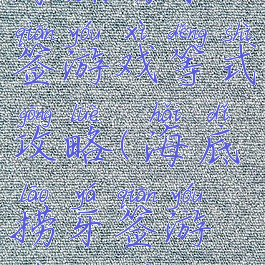 qiān yóu xì děng shì
签游戏等式
gōng lüè hǎi dǐ
攻略(海底
lāo yá qiān yóu
捞牙签游